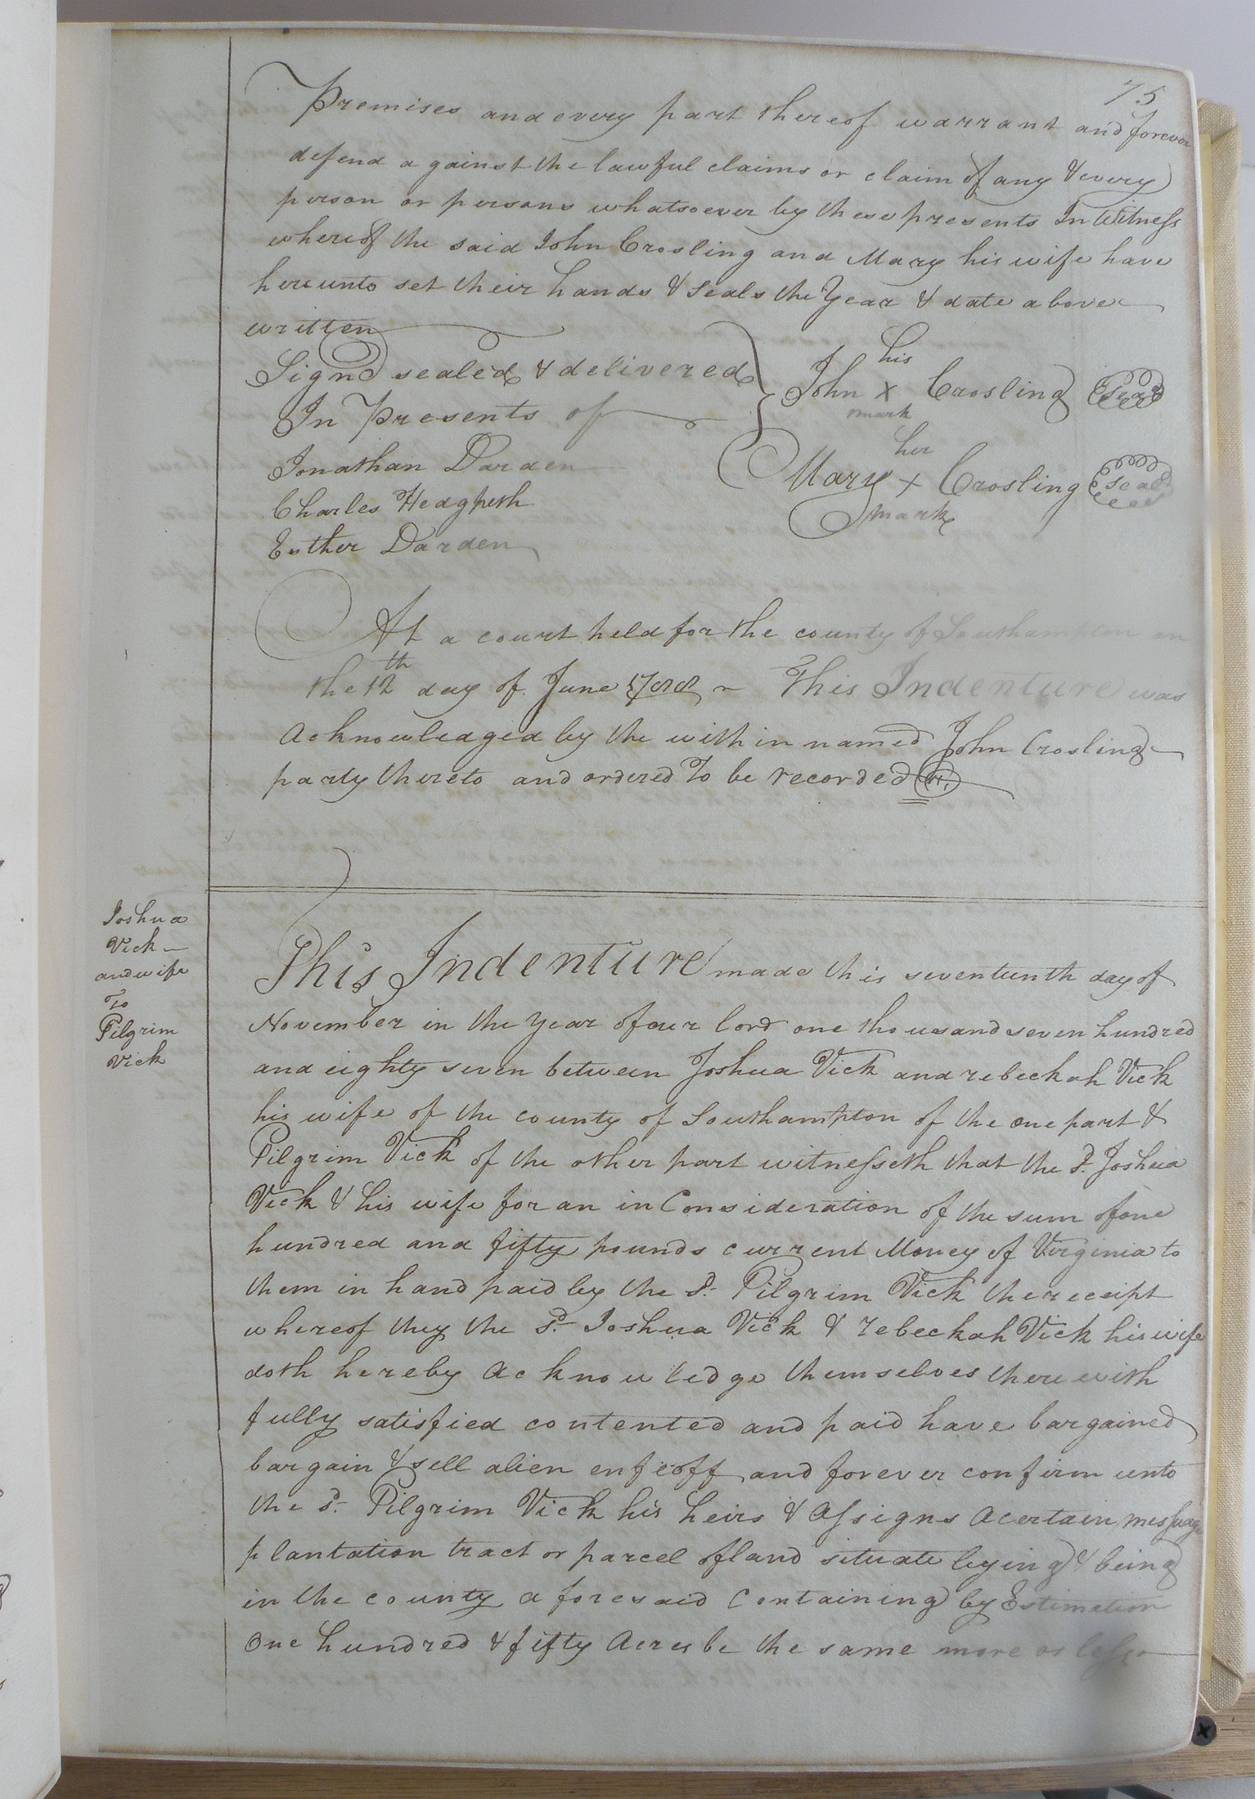 75
Premises and every part thereof warrant and forever
defend a gainst the lawful claims or claim of any & every
person or persons whatsoever by these presents In Witness
whereof the said John Crosling and Mary his wife have
hereunto set their hands & seals the Year & date above
written
Signd sealed & delivered
In Presents of
Jonathan Darden
Charles Hedgpeth
Esther Darden
his
John X Crosling Seal
mark
her
Mary X Crosling Seal
mark
At a court held for the county of Southampton on
the 12th day of June 1788 ~ This Indenture was
Acknowledged by the within named John Crosling
party thereto and ordered To be recorded
Joshua
Vick
and wife
To
Pilgrim
Vick
This Indenture made this seventeenth day of
November in the year of our lord one thousand seven hundred
and eighty seven between Joshua Vick and rebeckah Vick
his wife of the county of Southampton of the one part &
Pilgrim Vick of the other part witnesseth that the sd. Joshua
Vick & his wife for an in Consideration of the sum of one
hundred and fifty pounds current Money of Virginia to
them in hand paid by the sd. Pilgrim Vick the receipt
whereof they the sd. Joshua Vick & rebeckah Vick his wife
doth hereby acknowledge themselves there with
fully satisfied contented and paid have bargained
bargain & sell alien enfeoff and forever confirm unto
the sd. Pilgrim Vick his heirs & assigns a certain messuage
plantation tract or parcel of land situate leying & being
in the county a foresaid Containing by Estimation
One hundred & fifty Acres be the same more or less